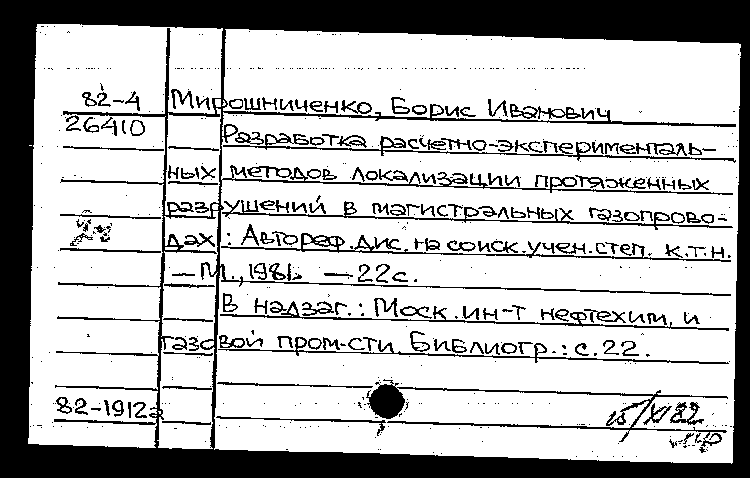 82-4 Мирошниченко, Борис Иванович
26410 Разработка расчетно-эксперименталь-
ных методов локализации протяженных
разрушений в магистральных газопрово-
дах : Автореф. дис. на соиск. учен. степ. к.т.н.
— М., 1981. — 22 с.
В надзаг.: Моск. ин-т нефтехим. и
газовой пром-сти. Библиогр.: с. 22.
82-1912а
15/XI 82